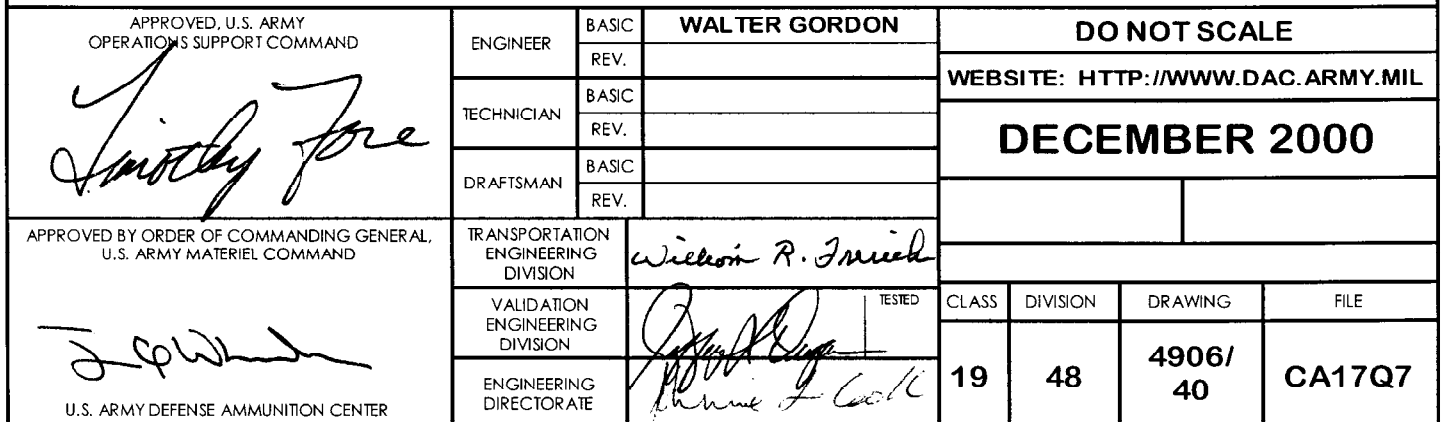 APPROVED, U.S. ARMY
OPERATIONS SUPPORT COMMAND
Timothy Fore
APPROVED BY ORDER OF COMMANDING GENERAL,
U.S. ARMY MATERIEL COMMAND
U.S. ARMY DEFENSE AMMUNITION CENTER
ENGINEER
BASIC
WALTER GORDON
REV.
TECHNICIAN
BASIC
REV.
DRAFTSMAN
BASIC
REV.
TRANSPORTATION
ENGINEERING
DIVISION
William R.
VALIDATION
ENGINEERING
DIVISION
TESTED
ENGINEERING
DIRECTORATE
Cook
DO NOT SCALE
WEBSITE: HTTP://WWW.DAC.ARMY.MIL
DECEMBER 2000
CLASS DIVISION DRAWING FILE
19 48 4906/
40 CA17Q7